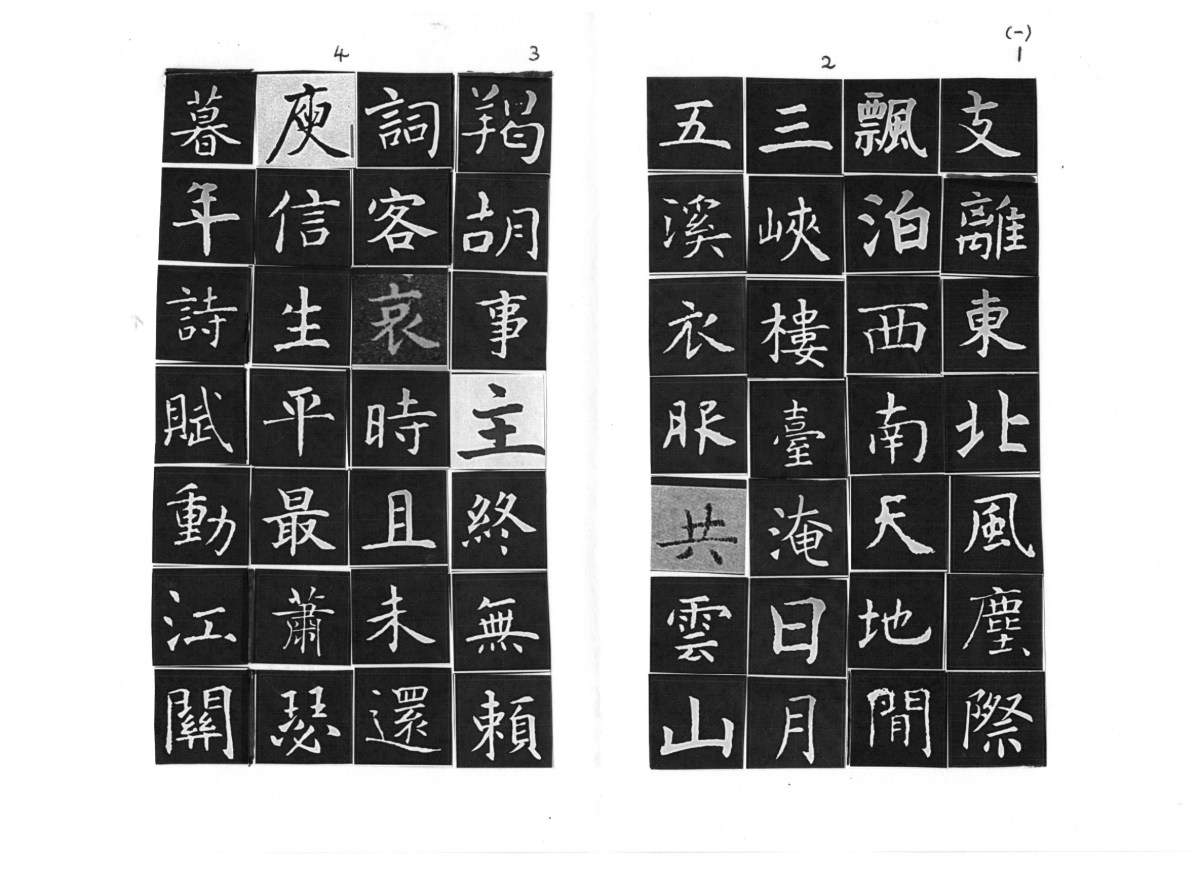 (一)
1
支離東北風塵際
飄泊西南天地間
2
三峽樓臺淹日月
五溪衣服共雲山
3
羯胡事主終無賴
詞客哀時且未還
4
庾信生平最蕭瑟
暮年詩賦動江關